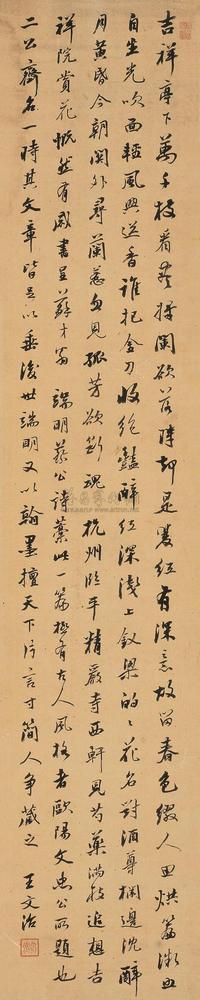 吉祥亭下萬千枝看盡將開欲落時却是雙紅有深意故留春色綴人思烘簾微血
自生光吹面輕風與送香誰把金刀收絶豔醉紅深淺上釵梁的々花名對酒尊欄邊沈醉
月黃昏今朝關外尋蘭蕙忽見孤芳欲斷魂杭州臨平精嚴寺西軒見芍藥滿枝追想吉
祥院賞花慨然有感書呈蘇才翁 端明蔡公詩藁此一篇極有古人風格者歐陽文忠公所題也
二公齊名一時其文章皆足以垂後世端明又以翰墨擅天下片言寸簡人爭藏之 王文治